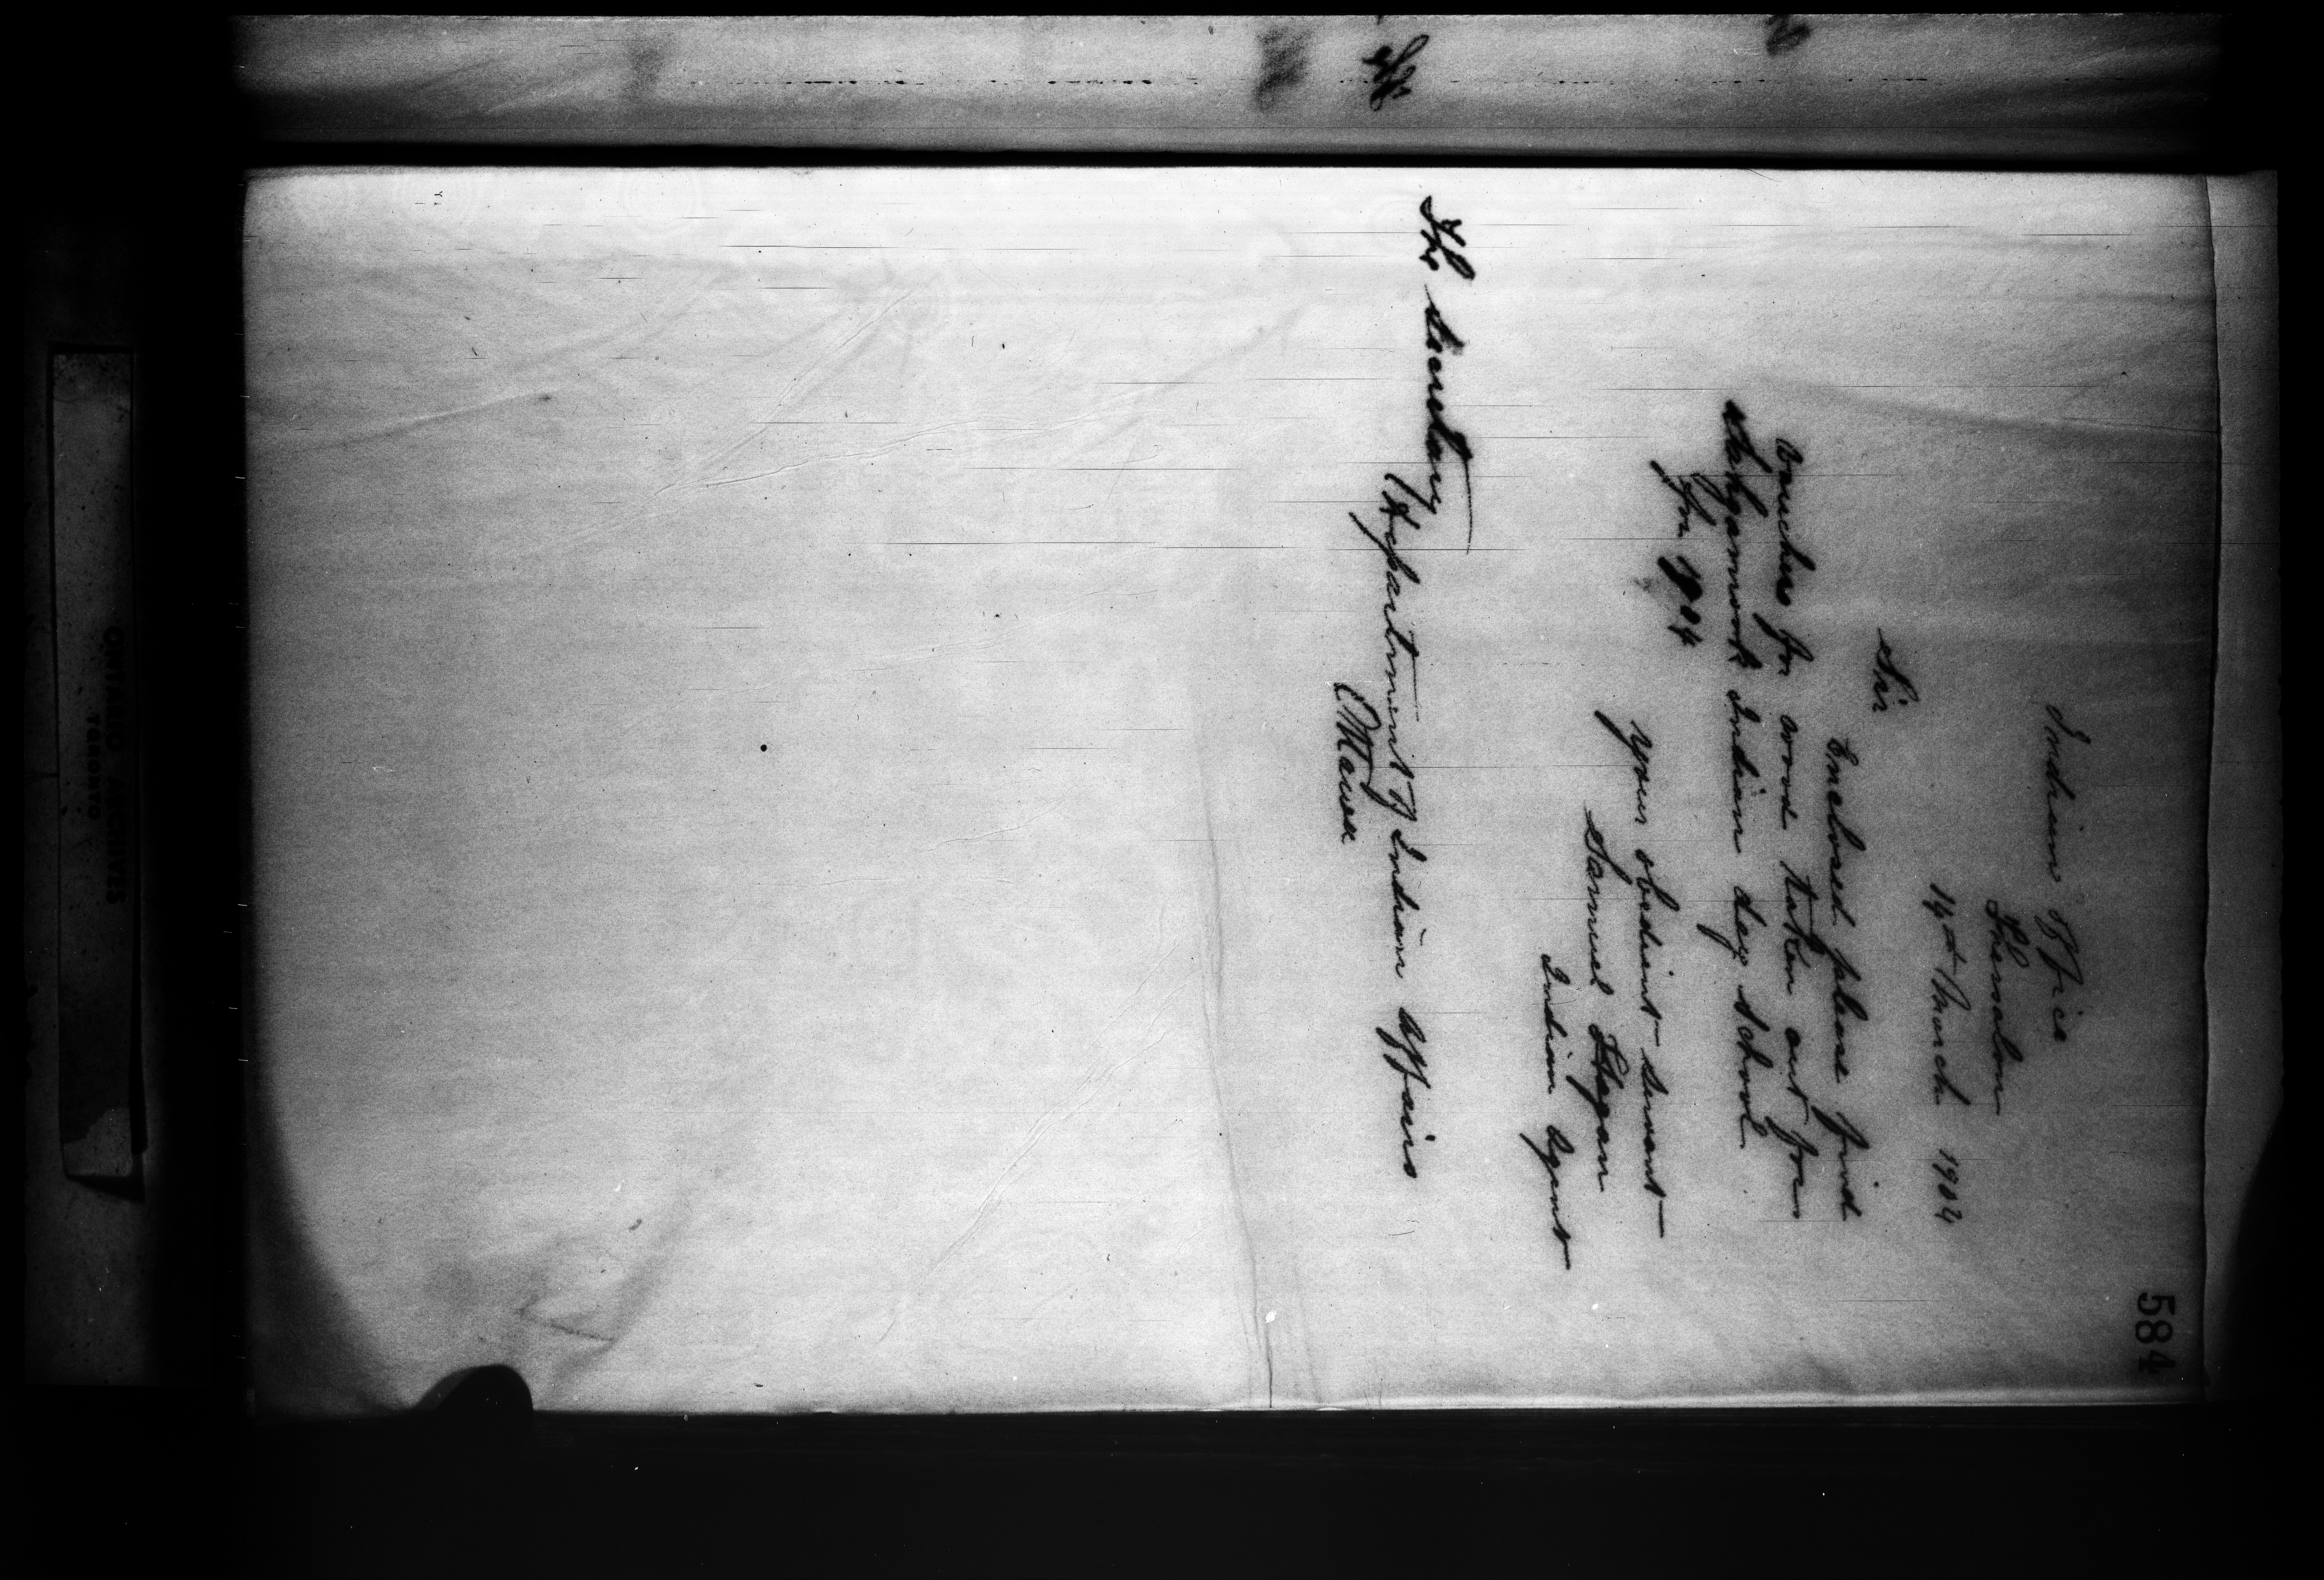 584
Indian Office
Thessalon
14th March 1904
Sir
Enclosed please find
vouchers for wood taken out for
Indian day school
for 1904
your obedient servant
Samuel Hagan
Indian Agent
The Secretary
Department of Indian Affairs
Ottawa
ONTARIO ARCHIVES
TORONTO